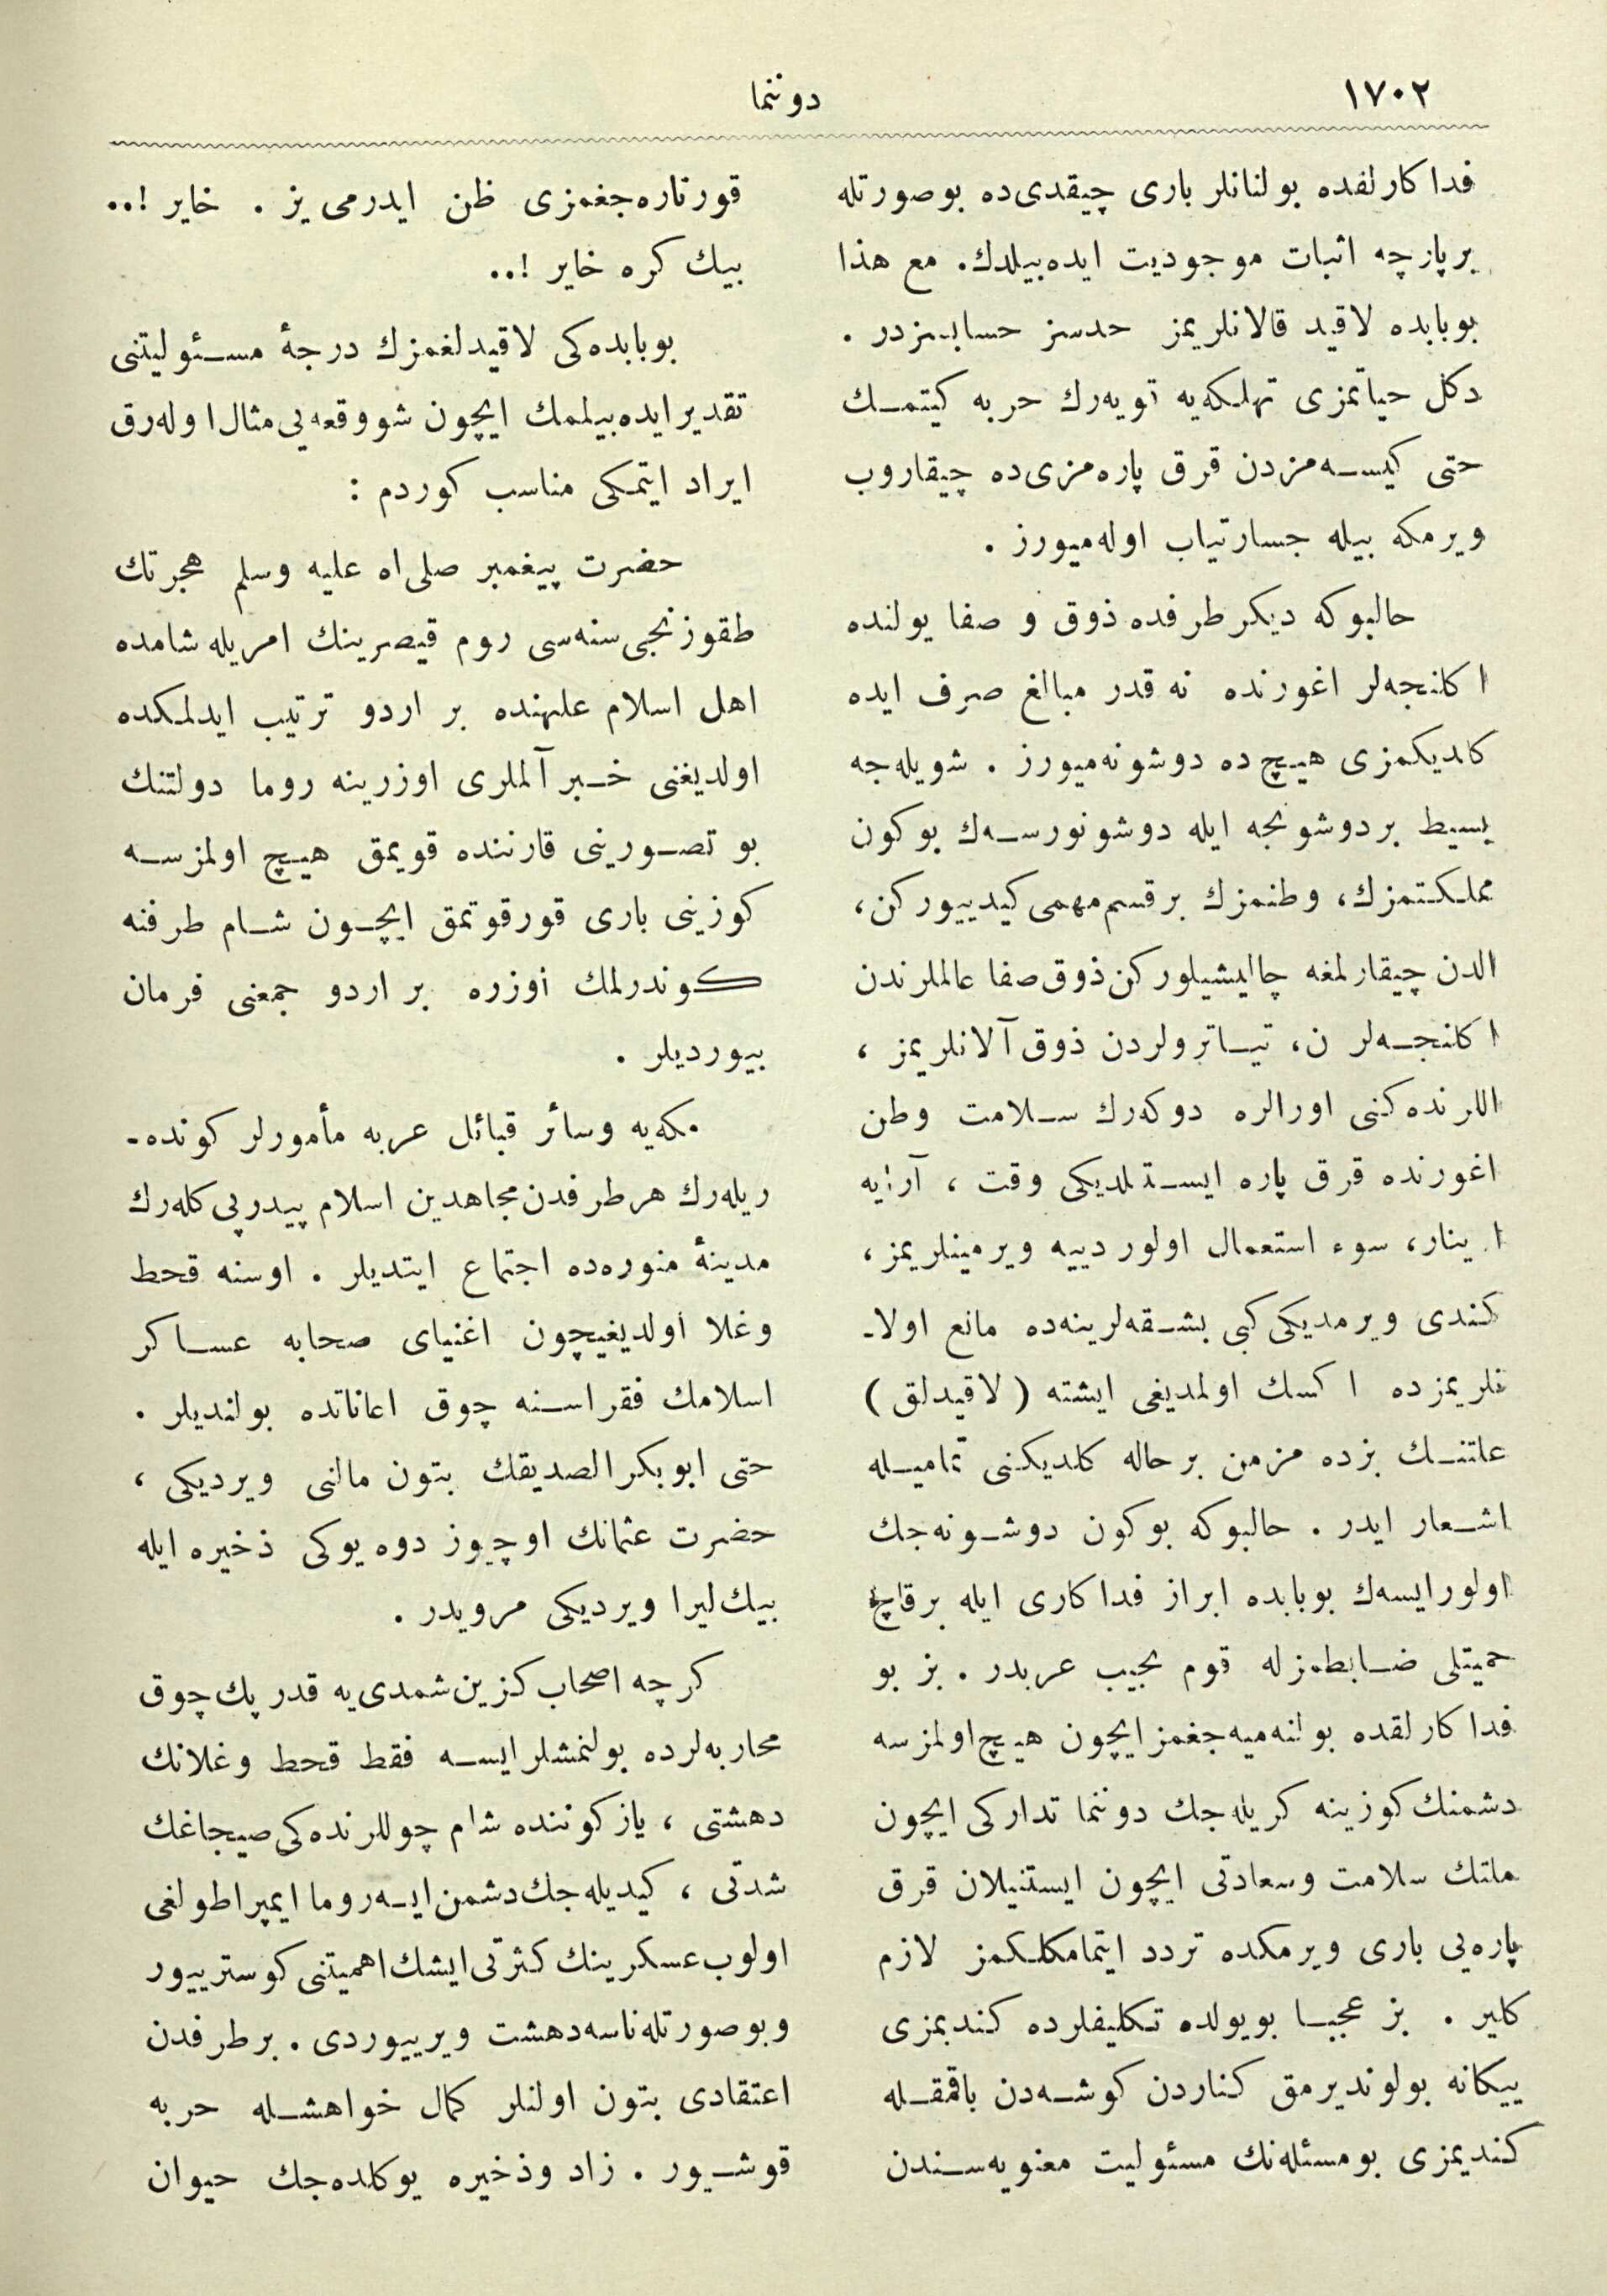 ١٧٠٢
دوننما
فداكارلقده بولنانلر باری چیقدی‌ده بوصورتله
برپارچه اثبات موجودیت ایده‌بیلدك. مع هذا
بوبابده لاقید قالانلریمز حدسز حسابسزدر .
دكل حیاتمزی تهلكه‌یه قویه‌رك حربه كیتمـك
حتی كیسه‌مزدن قرق پاره‌مزی‌ده چیقاروب
ویرمكه بیله جسارتیاب اوله‌میورز .
حالبوكه دیكر طرفده ذوق و صفا یولنده
اكلنجه‌لر اغورنده نه قدر مبالغ صرف ایده
كلدیكمزی هیـچ ده دوشونه‌میورز . شویله‌جه
بسیط بردوشونجه ایله دوشونورسه‌ك بوكون
مملكتمزك، وطنمزك برقسم مهمی كیدییوركن،
الدن چیقارلمغه چالیشیلوركن ذوق صفا عالملرندن
اكلنجـه‌لر ن، تیـاترولردن ذوق آلانلریمز ،
اللرنده‌كنی اورالره دوكه‌رك سـلامت وطن
اغورنده قرق پاره ایستـلدیكی وقت ، آرایه
ا ینار، سوء استعمال اولور دییه ویرمینلریمز،
كندی ویرمدیكی كبی بشـقه‌لرینه‌ده مانع اولا-
نلریمزده اكسك اولمدیغی ایشته ( لاقیدلق )
علتنـك بزده مزمن برحاله كلدیكنی تمامیـله
اشـعار ایدر . حالبوكه بوكون دوشـونه‌جك
اولورایسه‌ك بوبابده ابراز فداكاری ایله برقاچ
حمیتلی ضـابطمزله قوم نجیب عربدر . بز بو
فداكارلقده بولنه‌میه‌جغمز ایچون هیـچ اولمزسه
دشمنك كوزینه كریله‌جك دوننما تداركی ایچون
ملتك سلامت وسعادتی ایچون ایستنیلان قرق
پاره‌یی باری ویرمكده تردد ایتمامكلـكمز لازم
كلیر . بز عجبـا بویولده تـكلیفلرده كندیمزی
بیكانه بولوندیرمق كناردن كوشـه‌دن باقمقـله
كندیمزی بومسئله‌نك مسئولیت معنویه‌سـندن
قورتاره‌جغمزی ظن ایدرمی‌یز . خایر !..
بیك كره خایر !..
بوبابده‌كی لاقیدلغمزك درجۀ مسـئولیتنی
تقدیر ایده‌بیلمك ایچون شووقعه‌یی مثال اوله‌رق
ایراد ایتمكی مناسب كوردم :
حضرت پیغمبر صلی‌اه علیه وسلم هجرتك
طقوزنجی سنه‌سی روم قیصرینك امریله شامده
اهل اسلام علیهنده بر اردو ترتیب ایدلمكده
اولدیغنی خـبر آلملری اوزرینه روما دولتنك
بو تصـورینی قارننده قویمق هیـچ اولمزسـه
كوزینی باری قورقوتمق ایچـون شـام طرفنه
كوندرلمك اوزره بر اردو جمعنی فرمان
بیوردیلر .
مكه‌یه وسائر قبائل عربه مأمورلر كونده-
ریله‌رك هرطرفدن مجاهدین اسلام پیدرپی كله‌رك
مدینۀ منوره‌ده اجتماع ایتدیلر . اوسنه قحط
وغلا اولدیغیچون اغنیای صحابه عسـاكر
اسلامك فقراسـنه چوق اعاناتده بولندیلر .
حتی ابوبكرالصدیقك بتون مالنی ویردیكی ،
حضرت عثمانك اوچیوز دوه یوكی ذخیره ایله
بیك لیرا ویردیكی مرویدر .
كرچه اصحاب كزین شمدی‌یه قدر پك چوق
محاربه‌لرده بولنمشلرایسـه فقط قحط وغلانك
دهشتی ، یازكوننده شام چوللرنده‌كی صیجاغك
شدتی ، كیدیله‌جك دشمن ایـه روما ایمپراطولغی
اولوب عسكرینك كثرتی ایشك اهمیتنی كوسترییور
وبوصورتله ناسه دهشت ویرییوردی . برطرفدن
اعتقادی بتون اولنلر كمال خواهشـله حربه
قوشـیور . زاد وذخیره یوكلده‌جك حیوان